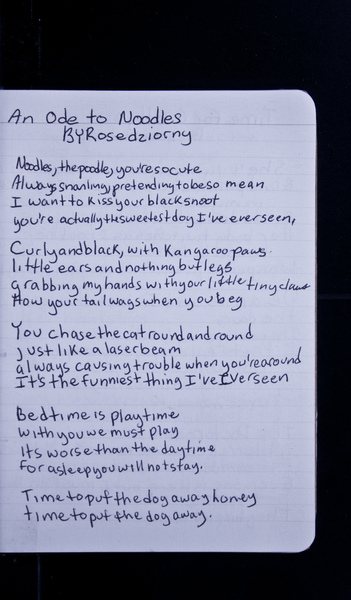 An Ode to Noodles
BY Rosedziorny
Noodles, the poodle, you're so cute
Always snarling, pretending to be so mean
I want to kiss your black snoot
you're actually the sweetest dog I've ever seen,
Curly and black, with Kangaroo paws.
little ears and nothing but legs
grabbing my hands with your little tiny claws
How your tail wags when you beg
You chase the cat round and round
just like a laser beam
always causing trouble when you're around
It's the funniest thing I've Ever seen
Bedtime is playtime
with you we must play
Its worse than the daytime
for asleep you will not stay.
Time to put the dog away honey
time to put the dog away.